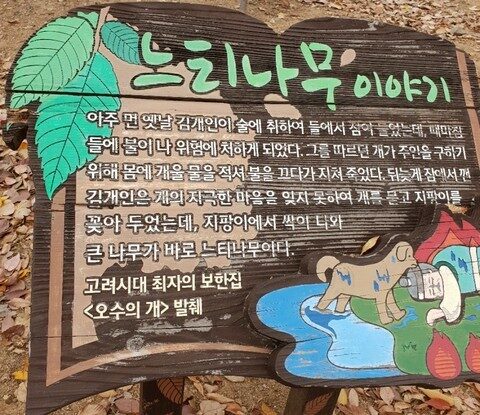 느티나무 이야기
아주 먼 옛날 김개인이 술에 취하여 들에서 잠이 들었는데, 때마침
들에 불이 나 위험에 처하게 되었다. 그를 따르던 개가 주인을 구하기
위해 몸에 개울 물을 적셔 불을 끄다가 지쳐 죽었다. 뒤늦게 잠에서 깬
김개인은 개의 지극한 마음을 잊지 못하여 개를 묻고 지팡이를
꽂아 두었는데, 지팡이에서 싹이 나와
큰 나무가 바로 느티나무이다.
고려시대 최자의 보한집
<오수의 개> 발췌